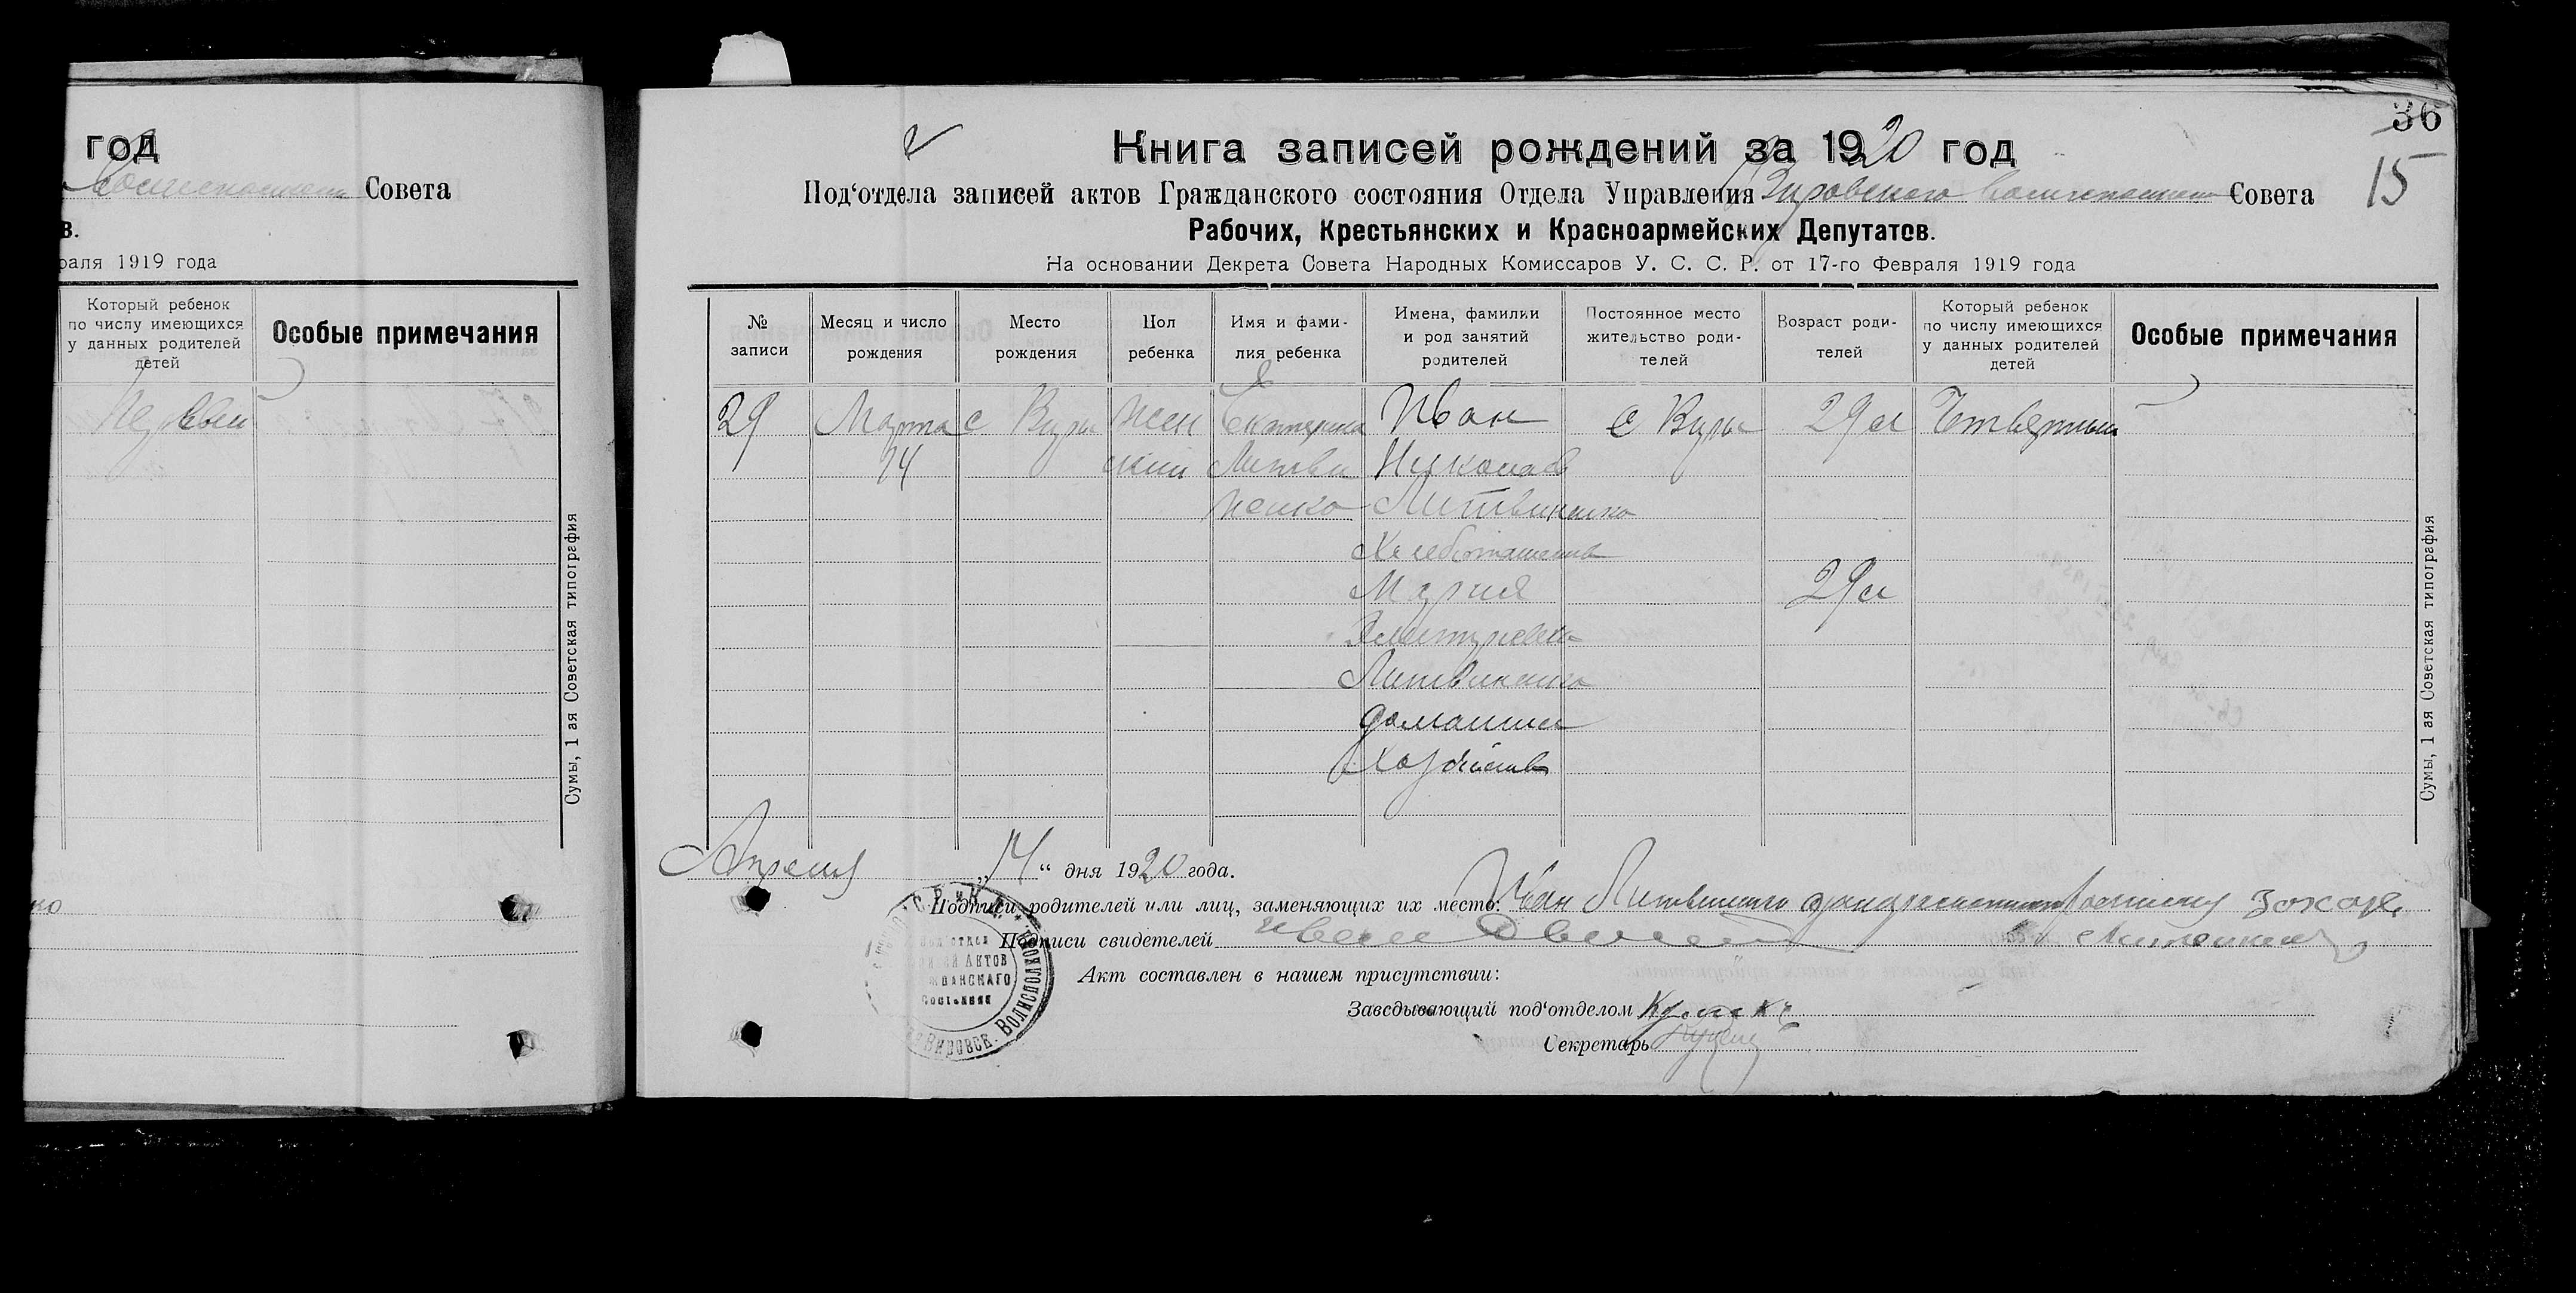 год
Совета
в.
раля 1919 года
Который ребенок
по числу имеющихся
у данных родителей
детей
Особые примечания
Первый
Сумы, 1 ая Советская типография
36
15
Книга записей рождений за 1920 год
Под‘отдела записей актов Гражданского состояния Отдела Управления Вировского Совета
Рабочих, Крестьянских и Красноармейских Депутатов.
На основании Декрета Совета Народных Комиссаров У. С. С. Р. от 17-го Февраля 1919 года
№
записи
Месяц и число
рождения
Место
рождения
Пол
ребенка
Имя и фами-
лия ребенка
Имена, фамилии
и род занятий
родителей
Постоянное место
жительство роди-
телей
Возраст роди-
телей
Который ребенок
по числу имеющихся
у данных родителей
детей
Особые примечания
29
Марта
14
с Виры
жен
ский
Екатерина
Литви
ненко
Иван
Николаев
Литвиненко
Хлебопашество
Мария
Литвиненко
домашнее
хозяйство
с Виры
29 л
29 л
Четвертый
Сумы, 1 ая Советская типография
Апреля „14“ дня 1920 года.
Подписи родителей или лиц, заменяющих их место: Иван Литвиненко
Подписи свидетелей
Акт составлен в нашем присутствии:
Заведывающий под‘отделом
Секретарь
АКТОВ
Вировск. Волисполкома